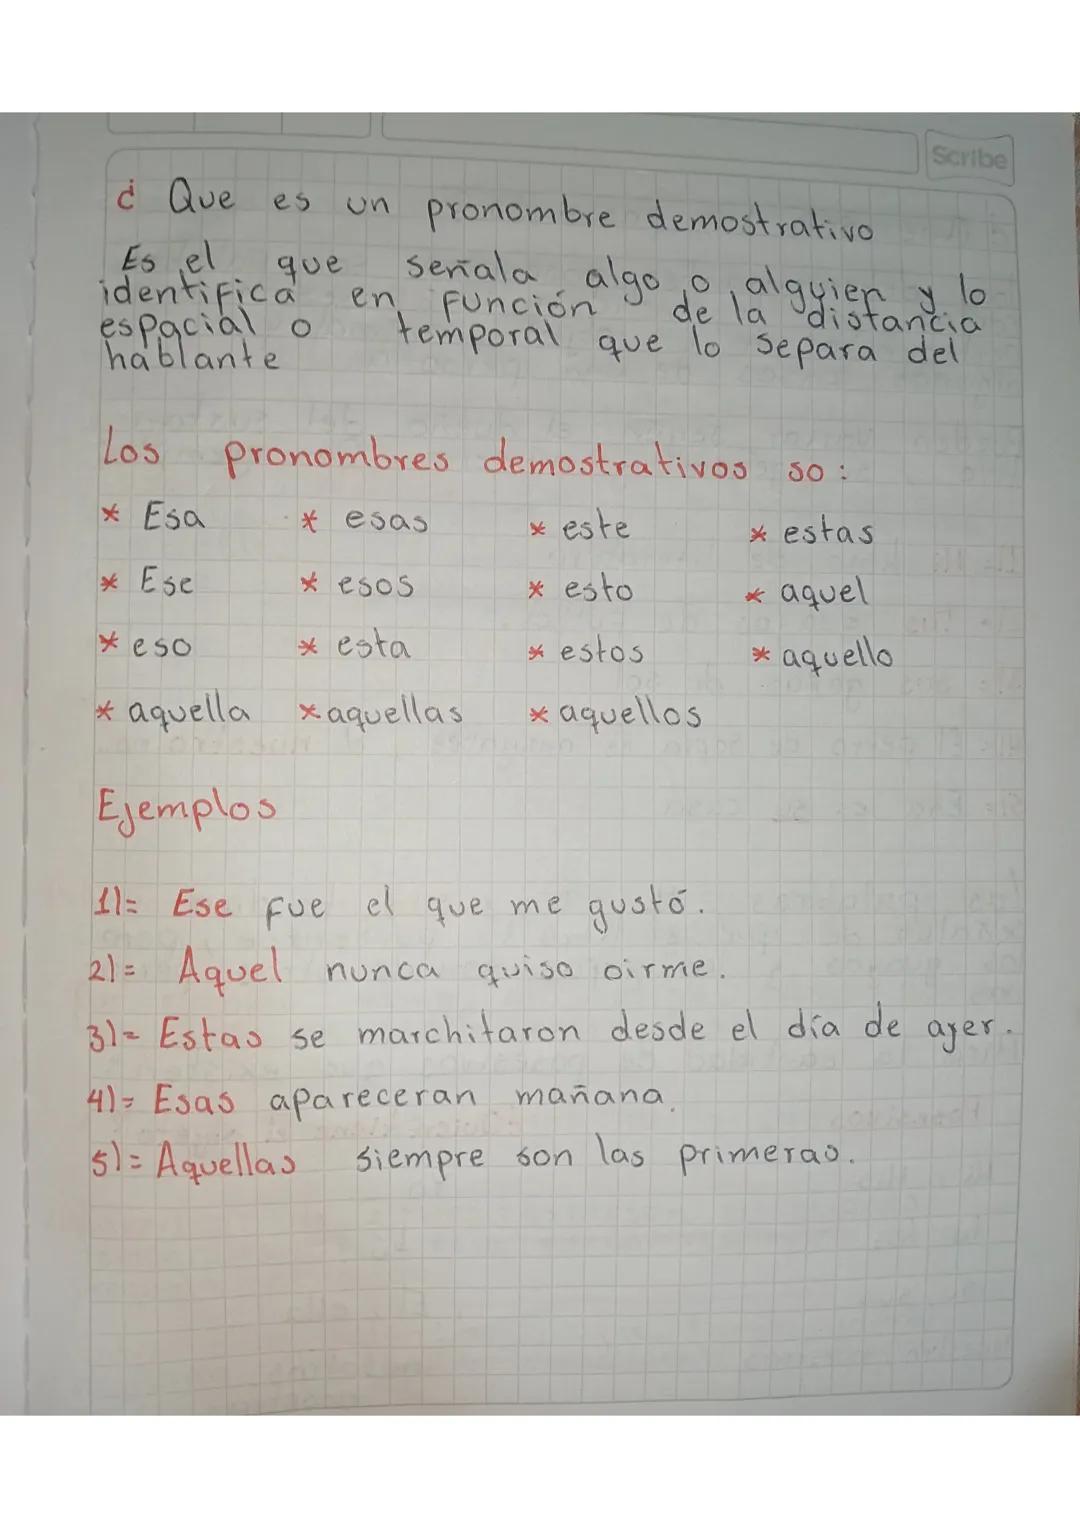 Scribe
¿ Que es un pronombre demostrativo
Es el que señala algo o alguien y lo
identifica en función de la distancia
espacial o temporal que lo separa del
hablante
Los pronombres demostrativos so:
* Esa * esas * este * estas
* Ese * esos * esto * aquel
* eso * esta * estos * aquello
* aquella * aquellas * aquellos
Ejemplos
1)= Ese fue el que me gustó.
2)= Aquel nunca quiso oirme.
3)= Estas se marchitaron desde el día de ayer.
4)= Esas apareceran mañana.
5)= Aquellas siempre son las primeras.